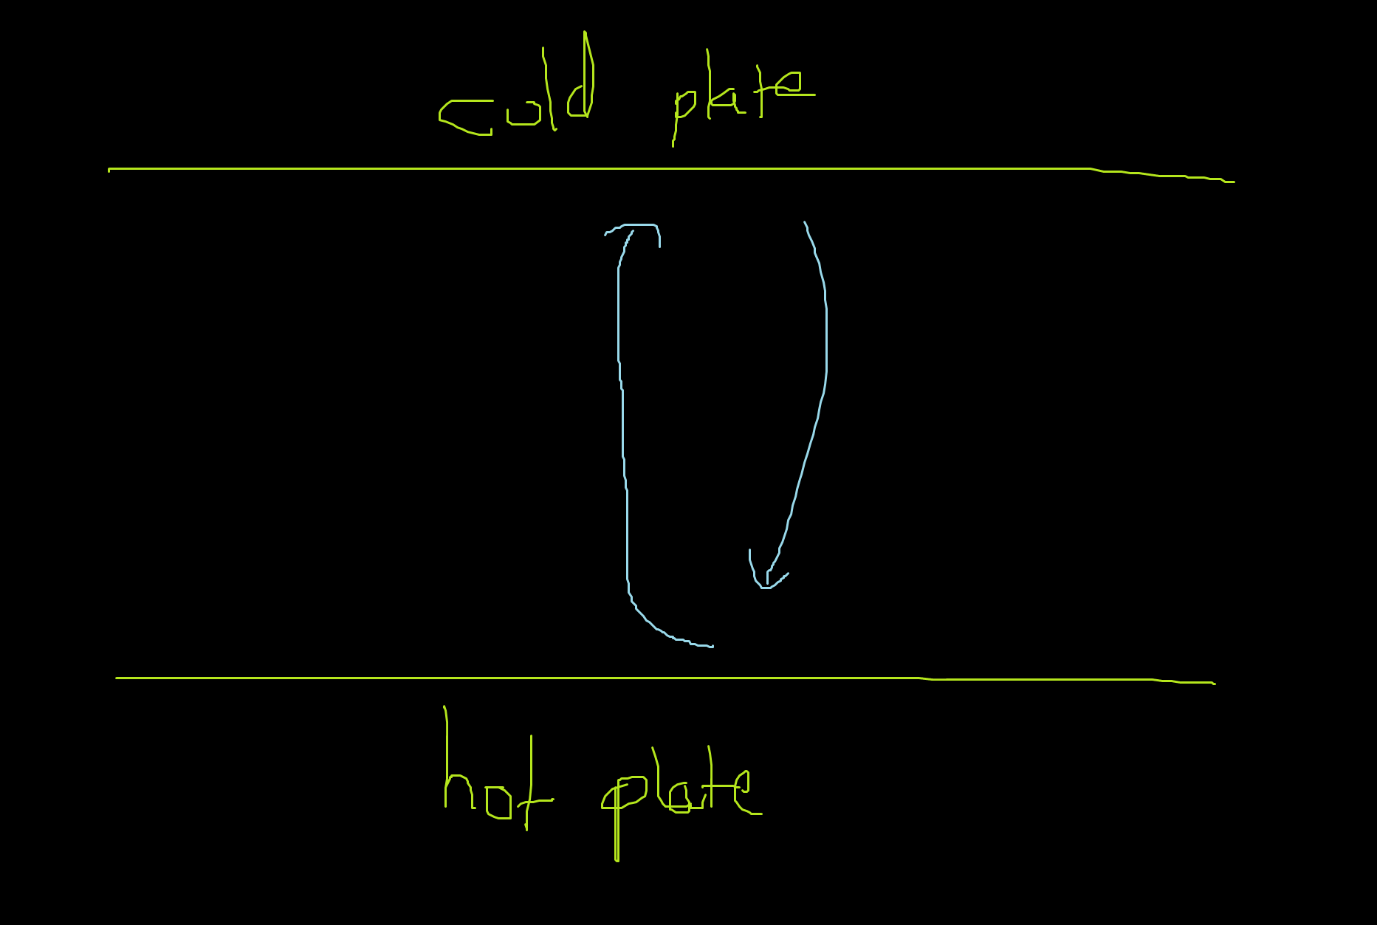 cold plate
hot plate